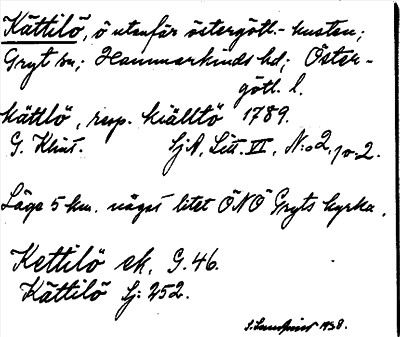 Kättilö, ö utanför östergötl.-kusten;
Gryt sn; Hammarkinds hd; Öster-
götl. l.
kättlö, resp. kiälltö 1789.
G. Klint. SjA, Litt. VI, N:o 2, 1 o. 2.
Läge 5 km. något litet ÖNÖ Gryts kyrka.
Kettilö ek. G. 46.
Kättilö Sj: 252.
1938.